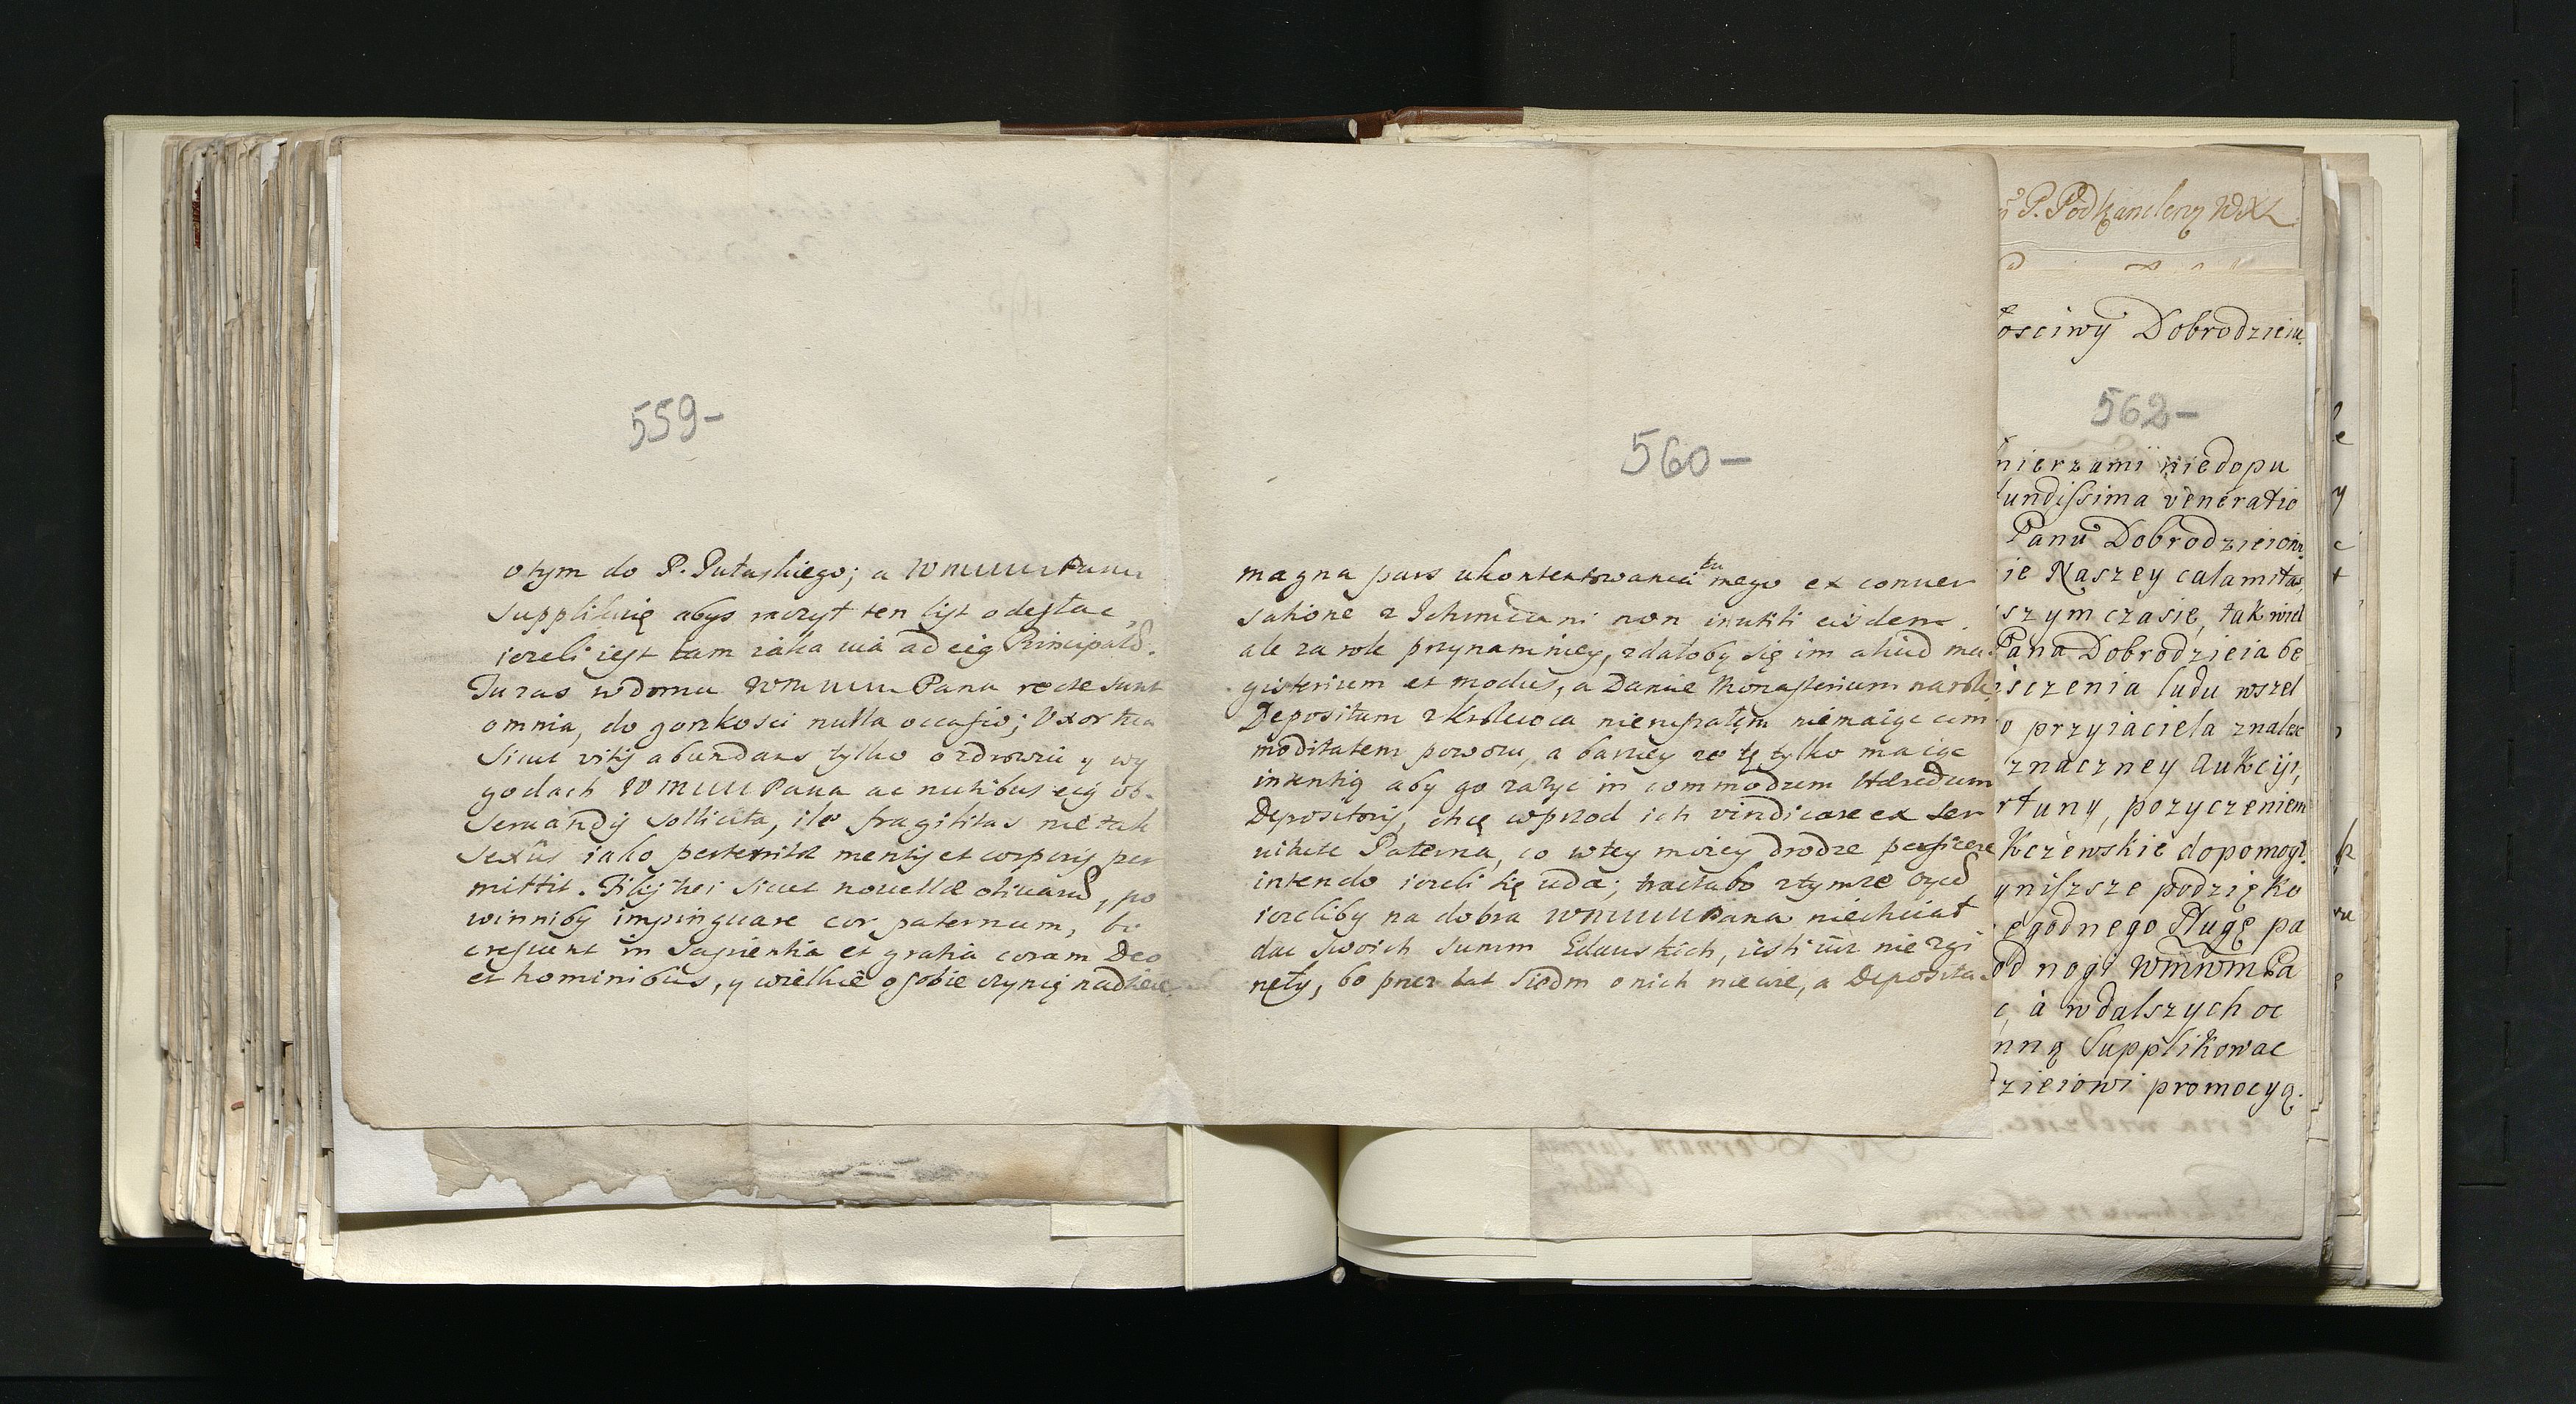 559-
otym do P. Pułaskiego; a WMMMM Panu
supplikuię abys raczył ten list odesłac,
iezeli iest tam iaka via ad eig Principales.
Tu zas w domu WMMMM Pana recte sunt
omnia, do gorzkosci nulla occasio; Uxor tua
sicut vitis abundans tylko o zdrowiu y wy
godach WMMM Pana ac nutibus eig ob-
seruandis sollicita, ile fragilitas nie tak
sexus iako mentis et corporis per
mittit. Filij tui sicut nouellæ oliuarum, po
winniby impinguare cor paternum, bo
crescunt in sapientia et gratia coram Deo
et hominibus, y wielkie o sobie czynią nadzieie
560-
magna pars ukontentowania tu mego ex conuer
satione z Ichmciami non inutili eisdem.
ale za rok przynamniey, zdałoby się im aliud ma
gisterium et modus, a Danie Monasterium narok
Depositum z Krolewca nie maiąc com
moditatem powozu, a barziey ze tę tylko maiąc
intentią aby go zazyc in commodum Hæredum
Depositorij, chcę wprzod ich vindicare ex ser
uitute Paterna, co w tey moiey drodze perficere
intendo iezeli się uda; tractabo z tymze Oycem
iezeliby na dobra WMMMM Pana niechciał
dac swoich summ Gdanskich, iesli iuz nie zgi
nęły, bo przez lat siedm o nich nie wie, a Deposita
P. Podkanclerzy WXL
łosciwy Dobrodzieiu.
562-
nierzami niedopu
fundissima veneratio
Panu Dobrodzieiowi
ie Naszey calamitas,
szym czasie, tak wiel
Pana Dobrodzieia be
sczenia ludu wszel
o przyiaciela znalesc
znaczney Aukcyi,
rtuny, pozyczeniem
Kczewskie dopomogł.
ynisz sze podzięko
egodnego Sługę pa
od nogi WMWM Pa
c, à w dalszych oc
nną supplikowac
dzieiowi promocyą.